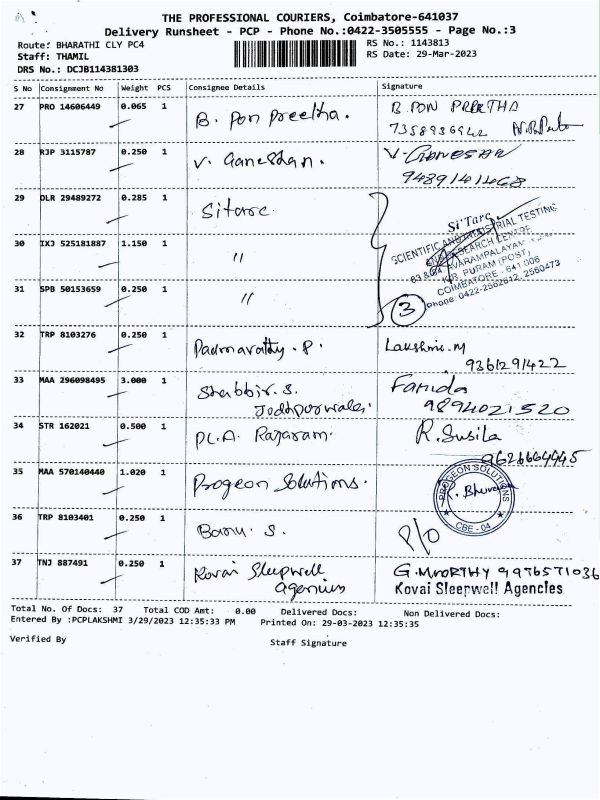 THE PROFESSIONAL COURIERS, Coimbatore-641037
Delivery Runsheet - PCP - Phone No.:0422-3505555 - Page No.:3
Route: BHARATHI CLY PC4
RS No.: 1143813
Staff: THAMIL
RS Date: 29-Mar-2023
DRS No.: DCJB114381303
S No Consignment No Weight PCS Consignee Details Signature
27 PRO 14606449 0.065 1 B. Pon Preetha. B. PON PREETHA
28 RJP 3115787 0.250 1 V. Ganeshan. V. GANESAN
9489141468
29 DLR 29489272 0.285 1 Sitarc
Si'Tarc
SCIENTIFIC AND INDUSTRIAL TESTING
RESEARCH CENTRE
83 & 84, AVARAMPALAYAM
30 IXJ 525181887 1.150 1 "
K.R. PURAM (POST),
COIMBATORE - 641 006
Phone: 0422-2562612, 2560473
31 SPB 50153659 0.250 1 "
3
32 TRP 8103276 0.250 1 Padmavathy. P. Lakshmi. M
9361291422
33 MAA 296098495 3.000 1 Shabbir. S. Farida
Jodhpurwala. 9894021520
34 STR 162021 0.500 1 PL.A. Rajaram. R. Susila
9626664445
35 MAA 570140440 1.020 1 Progeon Solutions.
PROGEON SOLUTIONS
CBE - 04
36 TRP 8103401 0.250 1 Banu. S. P/O
37 TNJ 887491 0.250 1 Kovai Sleepwell G. MOORTHY 9976571036
Agencies Kovai Sleepwell Agencies
Total No. Of Docs: 37 Total COD Amt: 0.00 Delivered Docs: Non Delivered Docs:
Entered By :PCPLAKSHMI 3/29/2023 12:35:33 PM Printed On: 29-03-2023 12:35:35
Verified By Staff Signature